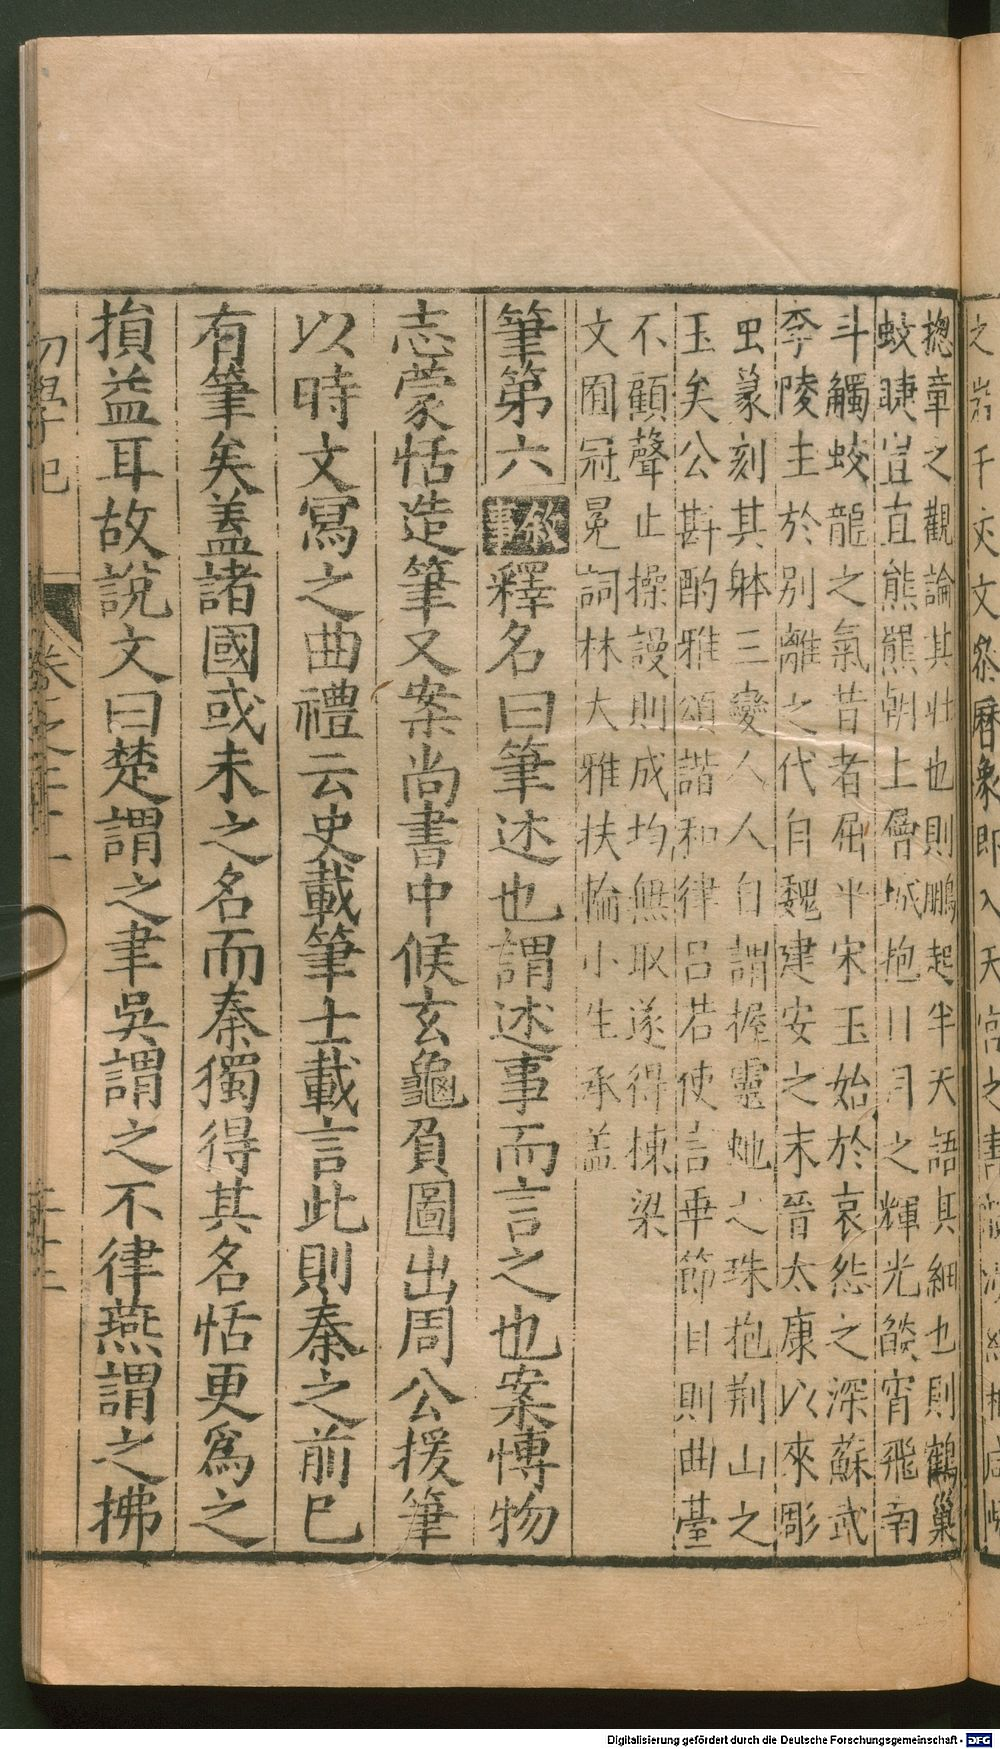 揔章之觀論其壯也則鵬起半天語其細也則鶴巢
蚊睫豈直熊羆朝上層城抱日月之輝光燄宵飛南
斗觸蛟龍之氣昔者屈平宋玉始於哀怨之深蘇武
李陵主於別離之代自魏建安之末晉太康以來彫
虫篆刻其躰三變人人自謂握靈虵之珠抱荆山之
玉矣公斟酌雅頌諧和律吕若使言乖節目則曲臺
不顧聲止操謾則成均無取遂得棟梁
文囿冠冕詞林大雅扶輪小生承盖
筆第六 敘事 釋名曰筆述也謂述事而言之也案慱物
志蒙恬造筆又案尚書中候玄龜負圖出周公援筆
以時文寫之曲禮云史載筆士載言此則秦之前已
有筆矣盖諸國或未之名而秦獨得其名恬更爲之
損益耳故說文曰楚謂之聿吳謂之不律燕謂之拂
初學記 卷之二十一 二十三
Digitalisierung gefördert durch die Deutsche Forschungsgemeinschaft - DFG